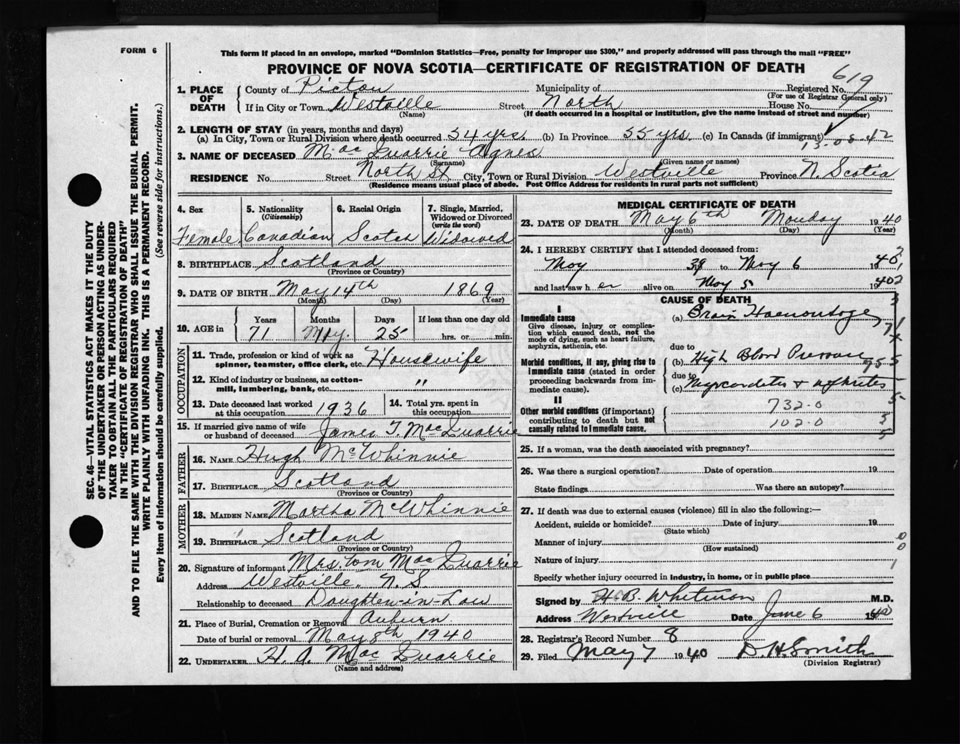 FORM 6
This form if placed in an envelope, marked "Dominion Statistics—Free, penalty for improper use $300," and properly addressed will pass through the mail "FREE"
PROVINCE OF NOVA SCOTIA—CERTIFICATE OF REGISTRATION OF DEATH
SEC. 46—VITAL STATISTICS ACT MAKES IT THE DUTY
OF THE UNDERTAKER OR PERSON ACTING AS UNDER-
TAKER TO OBTAIN ALL THE PARTICULARS REQUIRED
IN THE "CERTIFICATE OF REGISTRATION OF DEATH"
AND TO FILE THE SAME WITH THE DIVISION REGISTRAR WHO SHALL ISSUE THE BURIAL PERMIT.
WRITE PLAINLY WITH UNFADING INK. THIS IS A PERMANENT RECORD.
Every item of Information should be carefully supplied. (See reverse side for instructions.)
1. PLACE OF DEATH
County of Pictou Municipality of Registered No. 619
(For use of Registrar General only)
If in City or Town Westville Street North House No.
(Name) (If death occurred in a hospital or institution, give the name instead of street and number)
2. LENGTH OF STAY (in years, months and days)
(a) In City, Town or Rural Division where death occurred 34 yrs (b) In Province 55 yrs. (c) In Canada (if immigrant)
3. NAME OF DECEASED MacQuarrie Agnes
(Surname) (Given name or names)
RESIDENCE No. Street North St City, Town or Rural Division Westville Province N. Scotia
(Residence means usual place of abode. Post Office Address for residents in rural parts not sufficient)
4. Sex 5. Nationality (Citizenship) 6. Racial Origin 7. Single, Married, Widowed or Divorced (write the word)
Female Canadian Scotch Widowed
8. BIRTHPLACE Scotland
(Province or Country)
9. DATE OF BIRTH May 14th 1869
(Month) (Day) (Year)
10. AGE in Years Months Days If less than one day old
71 May. 25 hrs. or min.
OCCUPATION
11. Trade, profession or kind of work as spinner, teamster, office clerk, etc. Housewife
12. Kind of industry or business, as cotton-mill, lumbering, bank, etc. "
13. Date deceased last worked at this occupation 1936 14. Total yrs. spent in this occupation
15. If married give name of wife or husband of deceased James T. MacQuarrie
FATHER
16. NAME Hugh McWhinnie
17. BIRTHPLACE Scotland
(Province or Country)
MOTHER
18. MAIDEN NAME Martha McWhinnie
19. BIRTHPLACE Scotland
(Province or Country)
20. Signature of informant Mrs. Tom MacQuarrie
Address Westville. N.S.
Relationship to deceased Daughter-in-Law
21. Place of Burial, Cremation or Removal Auburn
Date of burial or removal May 8th 1940
22. UNDERTAKER H. A. MacQuarrie
(Name and address)
MEDICAL CERTIFICATE OF DEATH
23. DATE OF DEATH May 6th Monday 1940
(Month) (Day) (Year)
24. I HEREBY CERTIFY that I attended deceased from:
May 39 to May 6 1940,
and last saw h er alive on May 5 1940
CAUSE OF DEATH
I
Immediate cause
Give disease, injury or complication which caused death, not the mode of dying, such as heart failure, asphyxia, asthenia, etc.
(a) Brain Haemorrhage
due to
Morbid conditions, if any, giving rise to immediate cause (stated in order proceeding backwards from immediate cause).
(b) High Blood Pressure
due to
(c) Myocarditis & nephrites
II
Other morbid conditions (if important) contributing to death but not causally related to immediate cause.
732.0
102.0
25. If a woman, was the death associated with pregnancy?
26. Was there a surgical operation? Date of operation 19
State findings Was there an autopsy?
27. If death was due to external causes (violence) fill in also the following:—
Accident, suicide or homicide? Date of injury 19
(State which)
Manner of injury
(How sustained)
Nature of injury
Specify whether injury occurred in industry, in home, or in public place
Signed by H. B. Whitman M.D.
Address Westville Date June 6 1940
28. Registrar's Record Number 8
29. Filed May 7 1940 D H Smith
(Division Registrar)